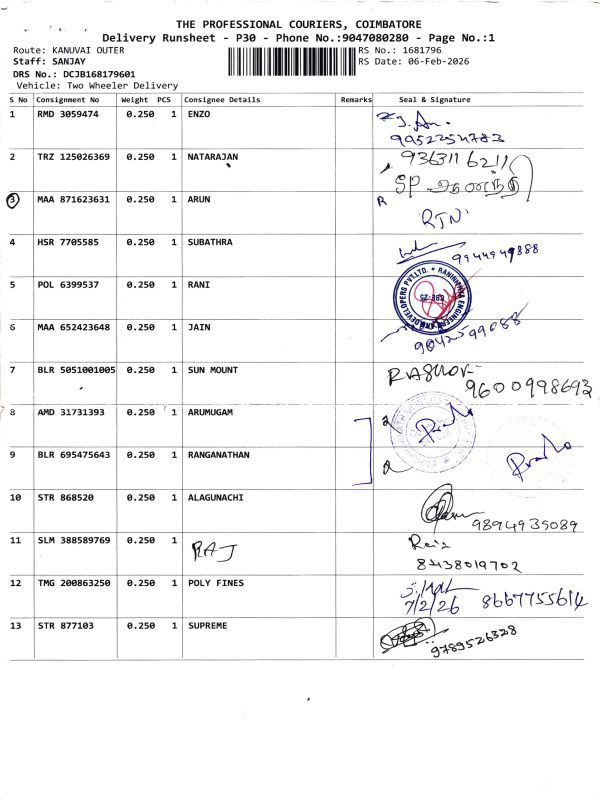 THE PROFESSIONAL COURIERS, COIMBATORE
Delivery Runsheet - P30 - Phone No.:9047080280 - Page No.:1
Route: KANUVAI OUTER
RS No.: 1681796
Staff: SANJAY
RS Date: 06-Feb-2026
DRS No.: DCJB168179601
Vehicle: Two Wheeler Delivery
S No Consignment No Weight PCS Consignee Details Remarks Seal & Signature
1 RMD 3059474 0.250 1 ENZO
9952254783
2 TRZ 125026369 0.250 1 NATARAJAN 9363116211
SP ஆனந்தி
3 MAA 871623631 0.250 1 ARUN R
'RJN'
4 HSR 7705585 0.250 1 SUBATHRA 9944949888
5 POL 6399537 0.250 1 RANI
6 MAA 652423648 0.250 1 JAIN 9042599088
7 BLR 5051001005 0.250 1 SUN MOUNT
9600998693
8 AMD 31731393 0.250 1 ARUMUGAM
9 BLR 695475643 0.250 1 RANGANATHAN
10 STR 868520 0.250 1 ALAGUNACHI
9894935089
11 SLM 388589769 0.250 1 RAJ
8438019702
12 TMG 200863250 0.250 1 POLY FINES
7/2/26 8667755614
13 STR 877103 0.250 1 SUPREME
9789526328